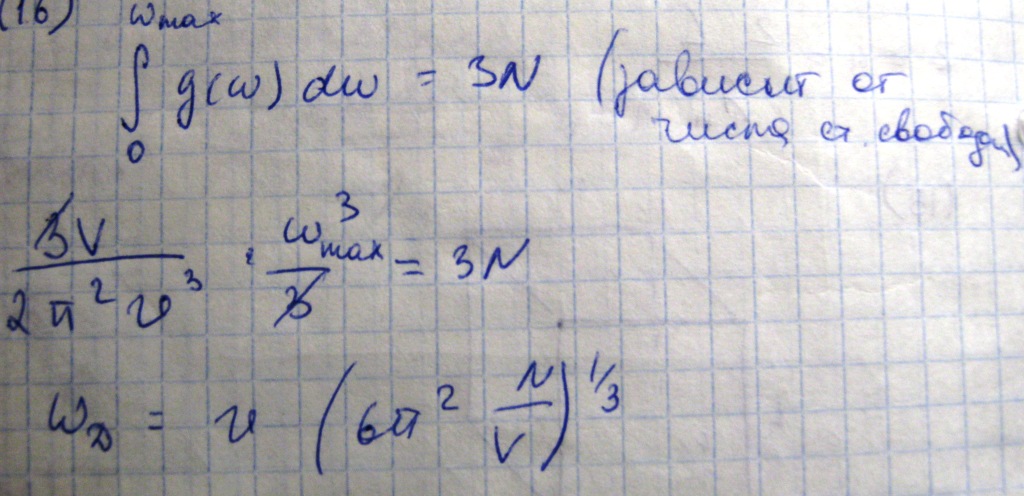 (16) ω max
∫ g(ω) dω = 3N (зависит от
0 числа ст. свободы)
3V / 2π²v³ · ω³max / 3 = 3N
ω_D = v (6π² N/V)^1/3